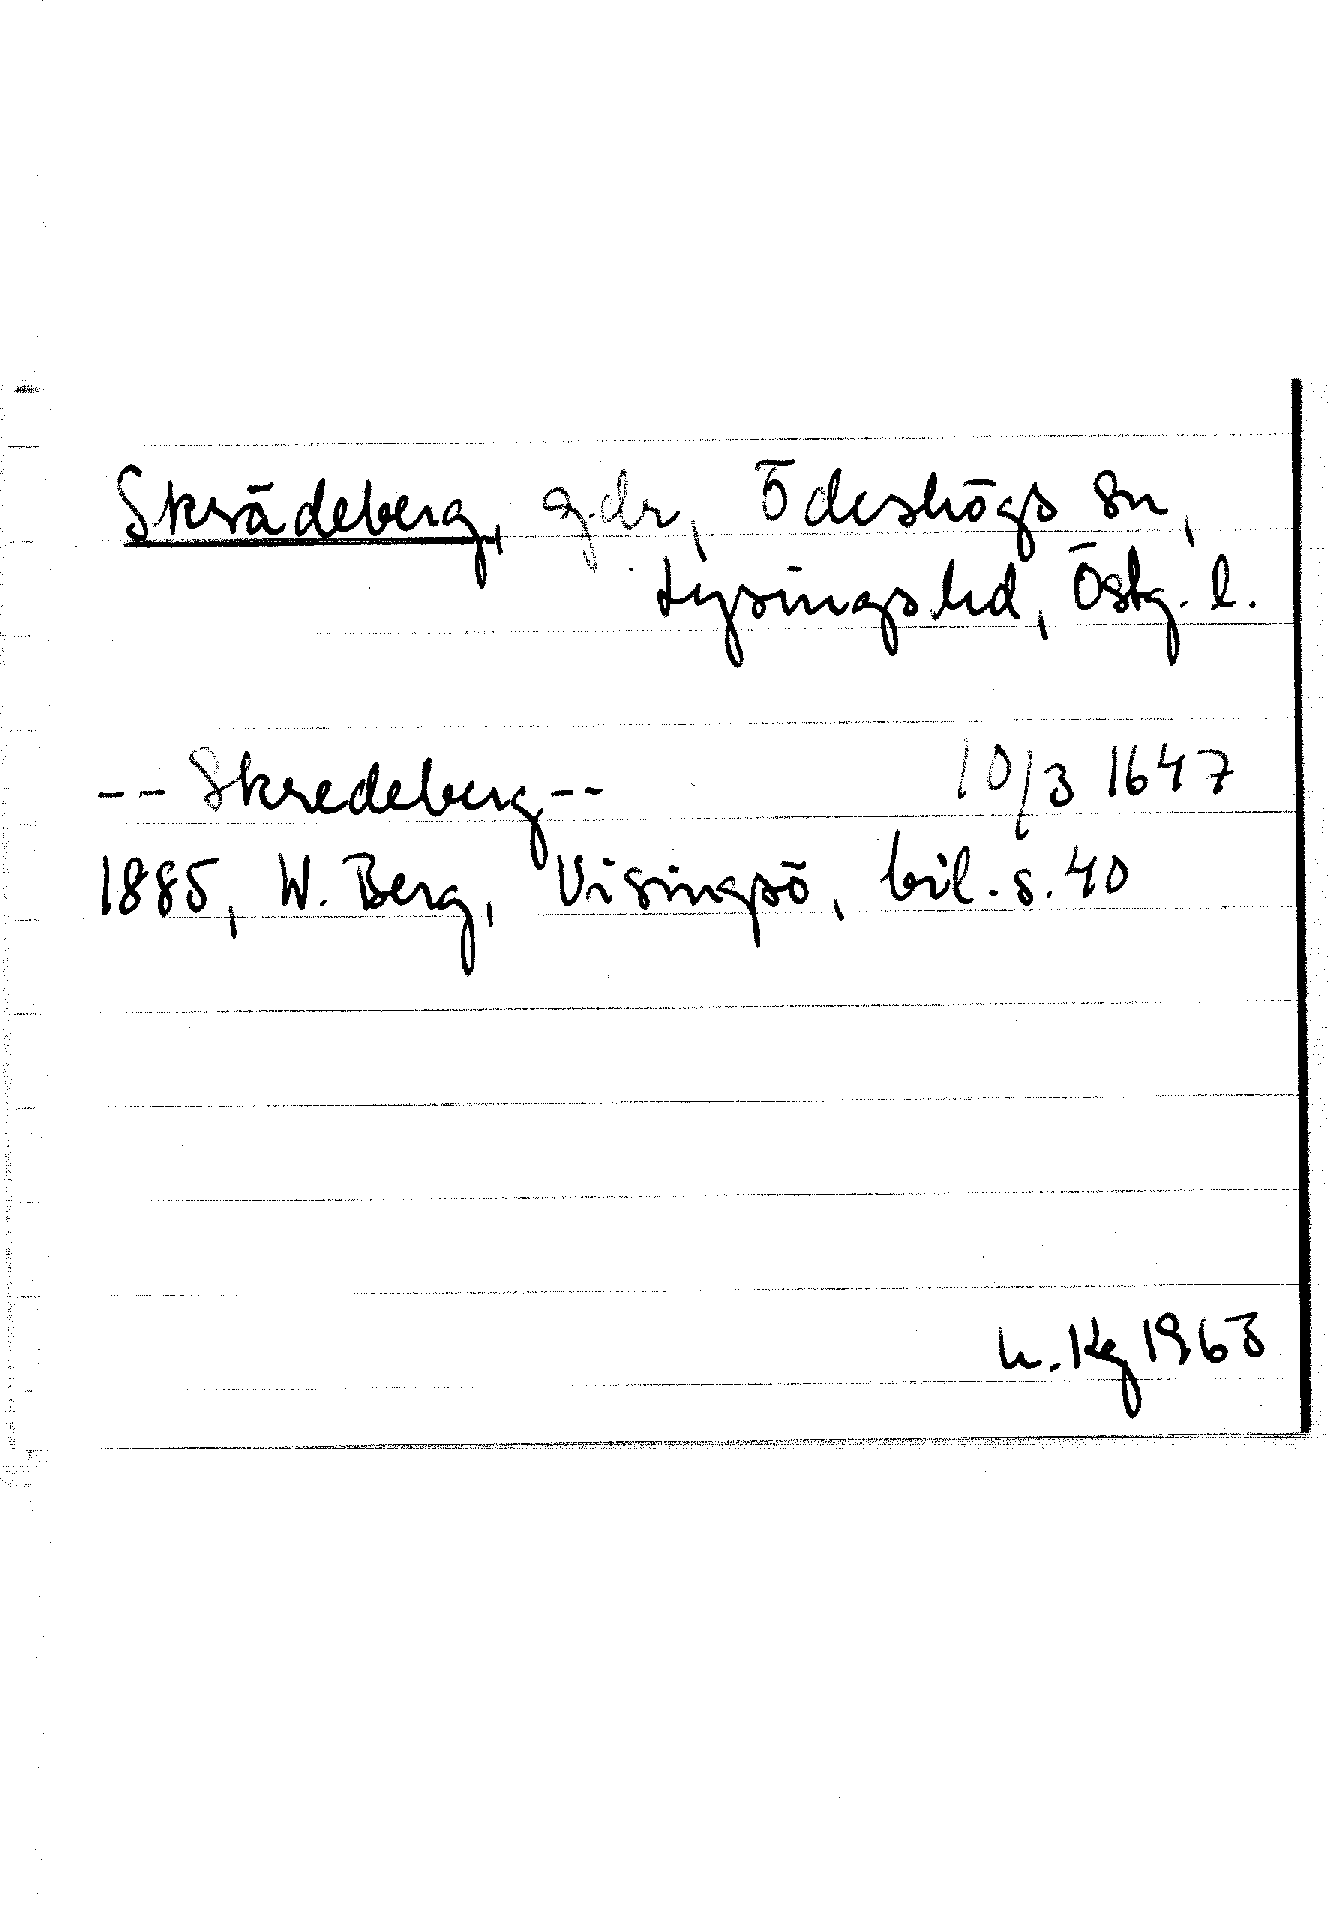 Skrädeberg, gdr, Ödeshögs sn,
Lysings hd, Östg. l.
-- Skredeberg -- 10/3 1647
1885, W. Berg, Visingsö, bil. s. 40
h. Kg 1963